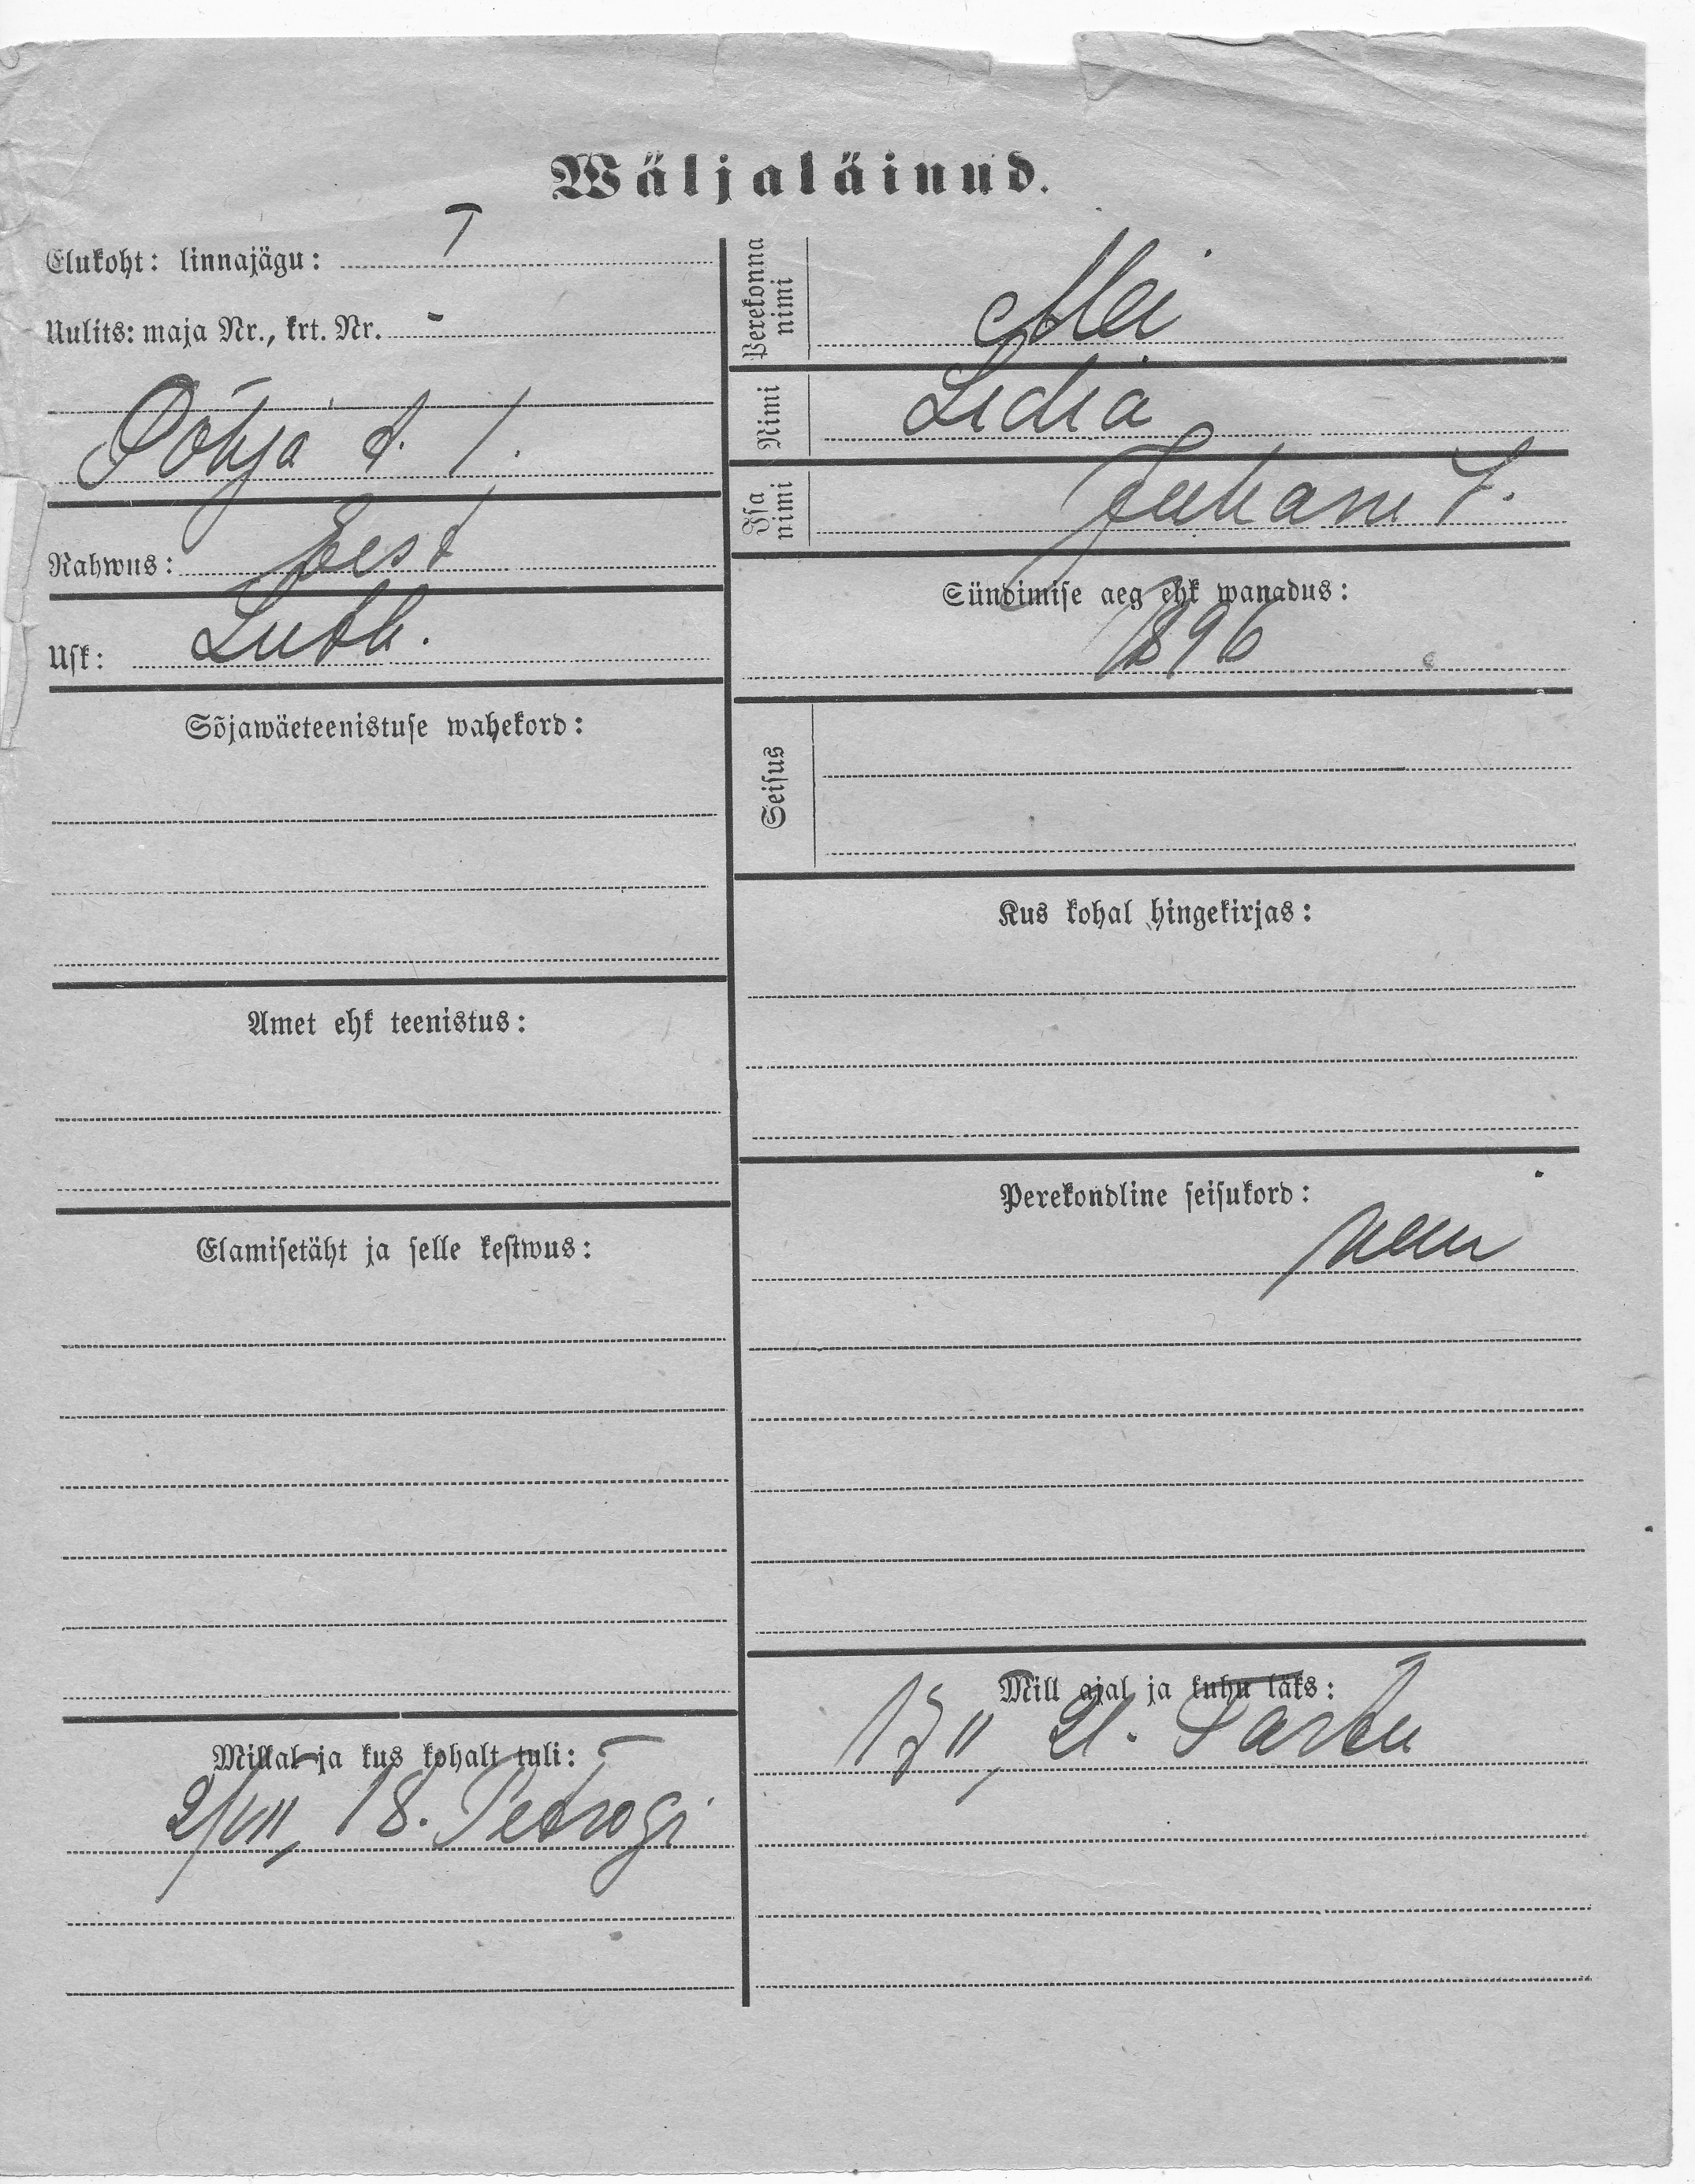 Wäljaläinud.
Elukoht: linnajägu: I
Uulits: maja Nr., krt. Nr. -
Põhja t. 1.
Rahwus: Eest
Usk: Luth.
Sõjawäeteenistuse wahekord:
Amet ehk teenistus:
Elamisetäht ja selle kestwus:
Millal ja kus kohalt tuli:
2/VII, 18. Petrogr
Perekonna nimi Mei
Nimi Lidia
Isa nimi Juhani t.
Sündimise aeg ehk wanadus:
1896
Seisus
Kus kohal hingekirjas:
Perekondline seisukord:
neiu
Mill ajal ja kuhu läks:
21. Tartu